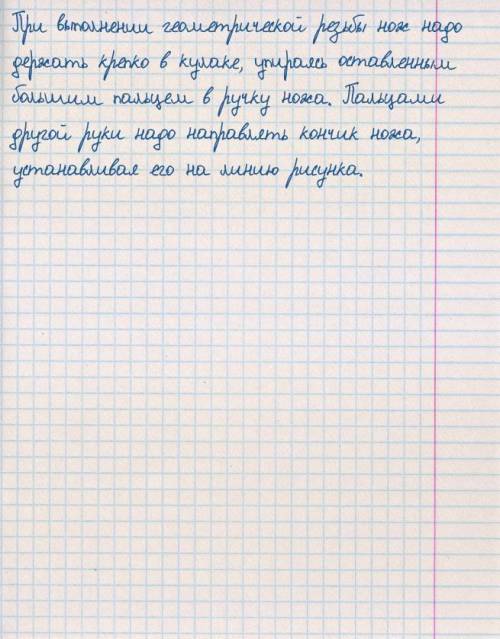 При выполнении геометрической резьбы нож надо
держать крепко в кулаке, упираясь оставленным
большим пальцем в ручку ножа. Пальцами
другой руки надо направлять кончик ножа,
устанавливая его на линию рисунка.